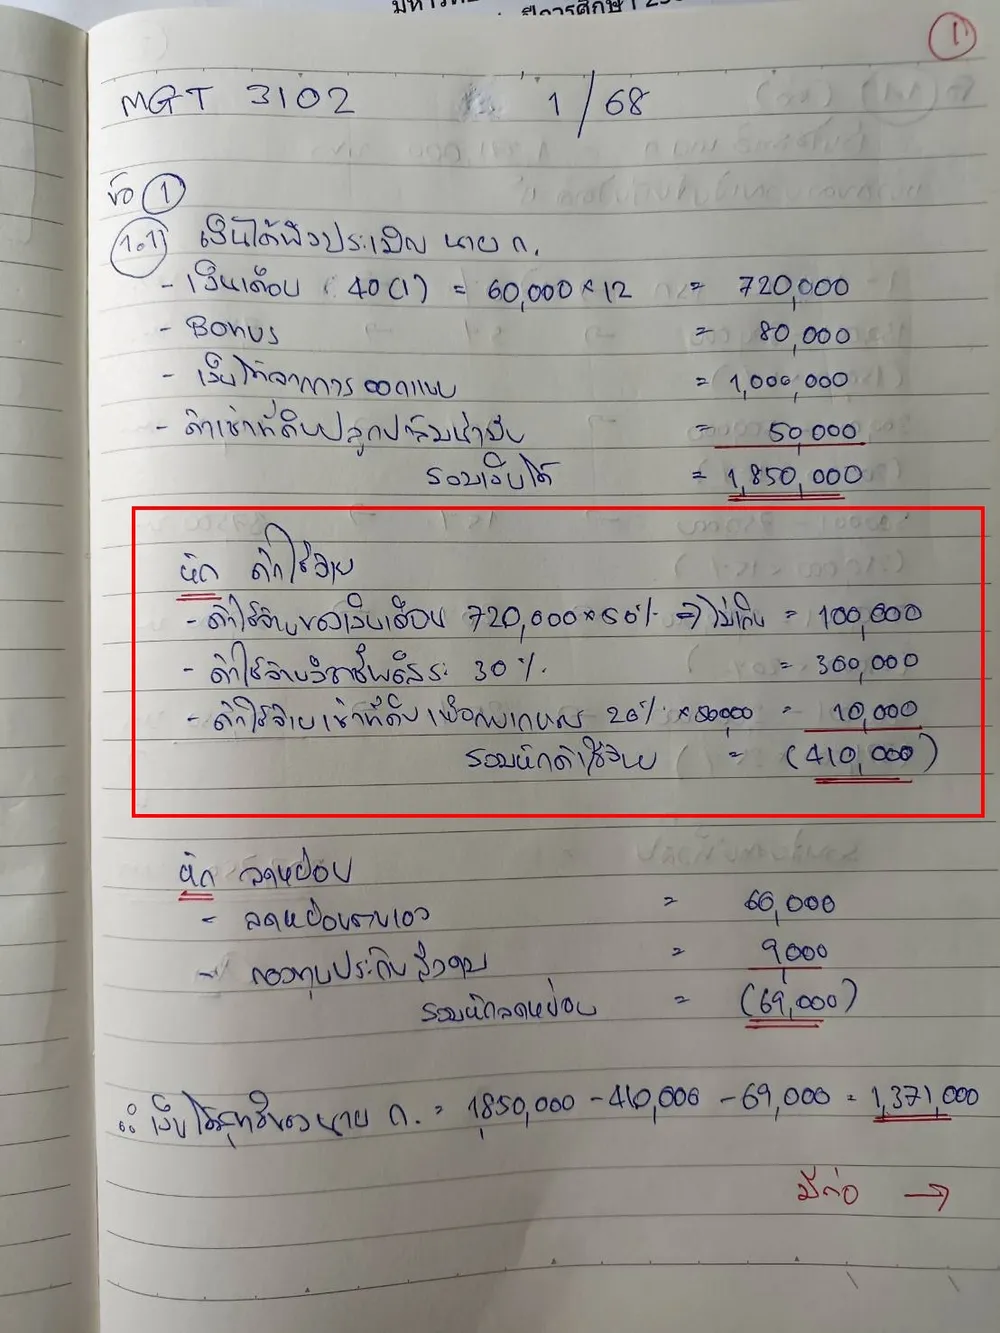 ปีการศึกษา 1 25
1
MGT 3102 1/68
ข้อ 1
1.1 เงินได้พึงประเมิน นาย ก.
- เงินเดือน 40(1) = 60,000 × 12 = 720,000
- Bonus = 80,000
- เงินได้จากการออกแบบ = 1,000,000
- ค่าเช่าที่ดินปลูกปาล์มน้ำมัน = 50,000
รวมเงินได้ = 1,850,000
หัก ค่าใช้จ่าย
- ค่าใช้จ่ายของเงินเดือน 720,000 × 50% ⇒ ไม่เกิน = 100,000
- ค่าใช้จ่ายวิชาชีพอิสระ 30% = 300,000
- ค่าใช้จ่ายเช่าที่ดินเพื่อการเกษตร 20% × 50,000 = 10,000
รวมหักค่าใช้จ่าย = (410,000)
หัก ลดหย่อน
- ลดหย่อนตนเอง = 60,000
- กองทุนประกันสังคม = 9,000
รวมหักลดหย่อน = (69,000)
∴ เงินได้สุทธิของนาย ก. = 1,850,000 - 410,000 - 69,000 = 1,371,000
มีต่อ →